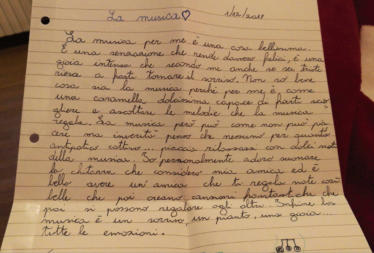 La musica♡ 1/12/2017
La musica per me è una cosa bellissima.
È una sensazione che rende davvero felici, è una
gioia intensa che secondo me anche se sei triste
riesce a farti tornare il sorriso. Non so bene
cosa sia la musica perché per me, è come
una caramella dolcissima capace di farti
e ascoltare le melodie che la musica
regala. La musica però può come non può pia
cere ma invertiti penso che nessuno per quanto
antipatico cattivo, piaccia rilassarsi con dolci note
della musica. Io personalmente adoro suonare
la chitarra che considero mia amica ed è
bello avere un'amica che ti regala note così
belle che poi creano canzoni fantastiche che
poi si possono regalare agli altri. Infine la
musica è un sorriso, un pianto, una gioia...
tutte le emozioni.